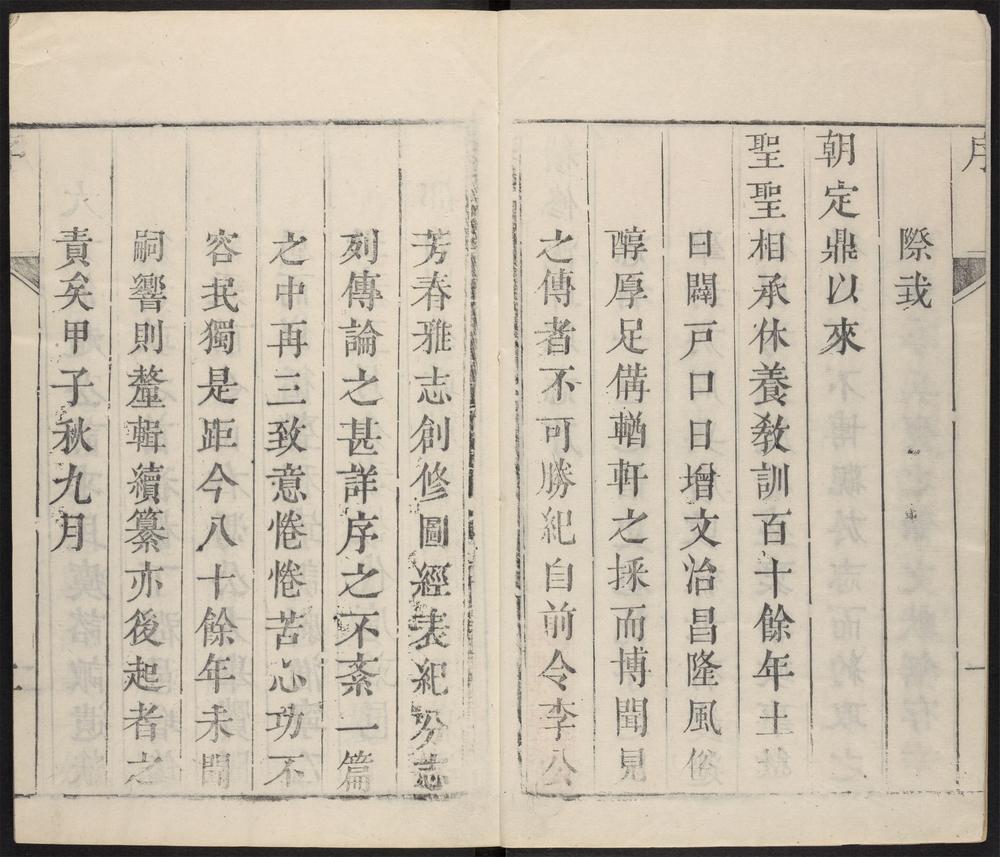 序
際我
朝定鼎以來
聖聖相承休養教訓百十餘年土
曰闢戶口日增文治昌隆風俗
醇厚足備輶軒之採而博聞見
之傳者不可勝紀自前令李公
芳春雅志創修圖經表紀分志
列傳論之甚詳序之不紊一篇
之中再三致意惓惓苦心功不
容民獨是距今八十餘年未聞
嗣響則釐輯續纂亦後起者之
責矣甲子秋九月